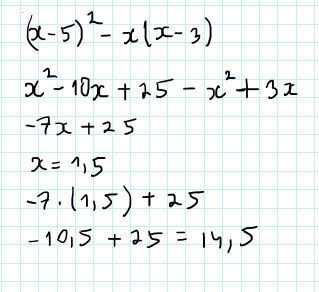 (x-5)² - x(x-3)
x² - 10x + 25 - x² + 3x
-7x + 25
x = 1,5
-7 · (1,5) + 25
-10,5 + 25 = 14,5